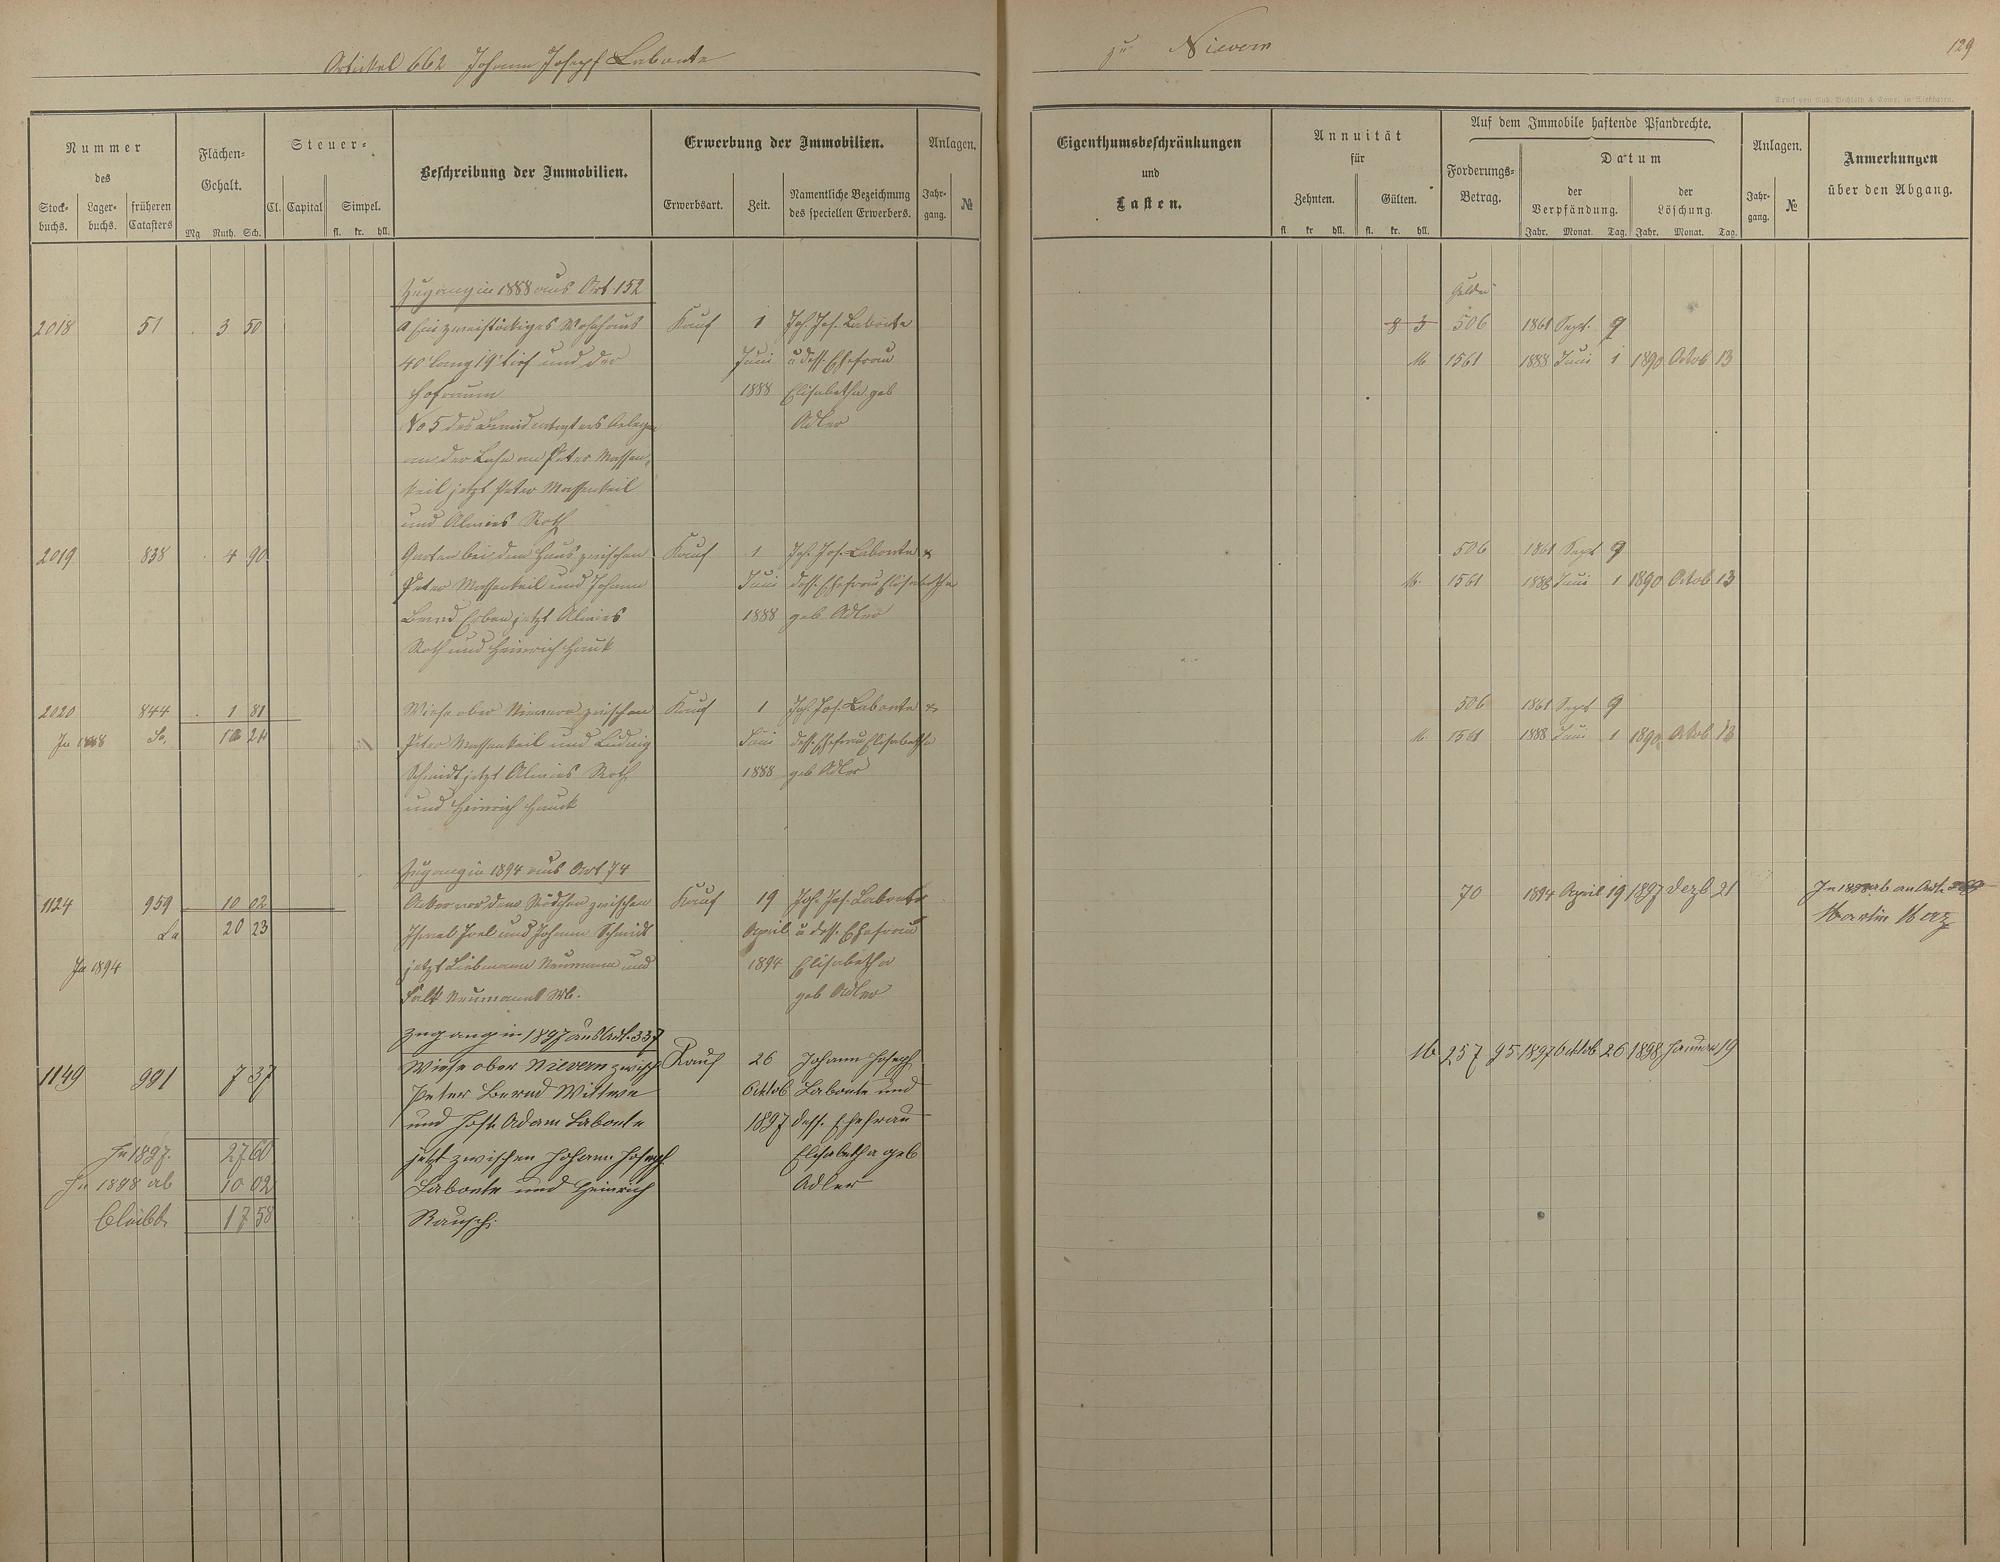 Artickel 662 Johann Josepf Labonte
zu Nievern
129
Druck von Rud. Bechtold & Comp. in Wiesbaden.
Nummer
des
Stock-
buchs.
Lager-
buchs.
früheren
Catasters
Flächen-
Gehalt.
Mg Ruth. Sch.
Steuer-
Cl. Capital Simpel.
fl. kr. hll.
Beschreibung der Immobilien.
Erwerbung der Immobilien.
Erwerbsart. Zeit.
Namentliche Bezeichnung
des speciellen Erwerbers.
Anlagen.
Jahr-
gang.
№
Eigenthumsbeschränkungen
und
Lasten.
Annuität
für
Zehnten. Gülten.
fl kr hll. fl. kr. hll.
Auf dem Immobile haftende Pfandrechte.
Forderungs-
Betrag.
Datum
der
Verpfändung.
der
Löschung.
Jahr. Monat. Tag. Jahr. Monat. Tag.
Anlagen.
Jahr-
gang.
№
Anmerkungen
über den Abgang.
Zugang in 1888 aus Art 152
2018 51 3 50 a Ein zweistöckiges Wohnhaus Kauf 1 Joh. Jos. Labonte 8 3 506 1861 Sept. 9
40' lang 19' tief und der Juni u dess. Ehefrau M 1561 1888 Juni 1 1890 Octob 13
Hofraum 1888 Elisabetha geb
No 5 des Adler
an der Lahn an Peter Massen-
keil jetzt Peter Massenkeil
und Roth
2019 838 4 90 Garten bei dem Haus zwischen Kauf 1 Joh. Jos. Labonte & 506 1861 Sept 9
Peter Massenkeil und Johann Juni dess. Ehefrau Elisabetha M. 1561 1888 Juni 1 1890 Octob 13
Bernd Erben jetzt 1888 geb Adler
Roth und Heinrich Hauk
2020 844 1 81 Wiese ober Nievern zwischen Kauf 1 Joh. Jos. Labonte & 506 1861 Sept 9
In 1888 Sa. 10 21 Peter Massenkeil und Ludwig Juni dess. Ehefrau Elisabetha M 1561 1888 Juni 1 1890 Octob 13
Schmidt jetzt Roth 1888 geb Adler
und Heinrich Hauck
Zugang in 1894 aus Art 74
1124 959 10 02 Acker vor dem zwischen Kauf 19 Joh. Jos. Labonte 70 1894 April 19 1897 Dezb 21 In 1898 ab an Artk
La 20 23 Joel und Johann Schmidt April u dess. Ehefrau Martin
In 1894 jetzt Liebmann Neumann und 1894 Elisabetha
Falk Neumanns Wb. geb Adler
Zugang in 1897 aus Art. 337
1149 991 7 37 Wiese ober Nievern zwisch Kauf 26 Johann Joseph M 257 95 1897 Octob 26 1898 Januar 19
Peter Bernd Wittwe Octob Labonte und
und Joh. Adam Labonte 1897 dess. Ehefrau
In 1897. 27 60 jetzt zwischen Johann Joseph Elisabetha geb
In 1898 ab 10 02 Labonte und Heinrich Adler
bleibt 17 58 Rausch.